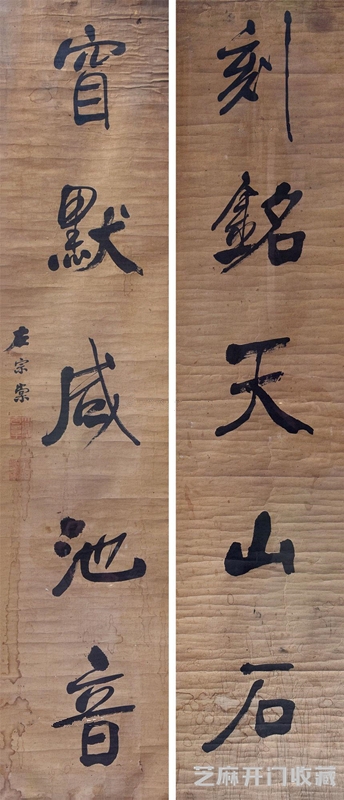 刻銘天山石
窅默咸池音
左宗棠
芝麻开门收藏